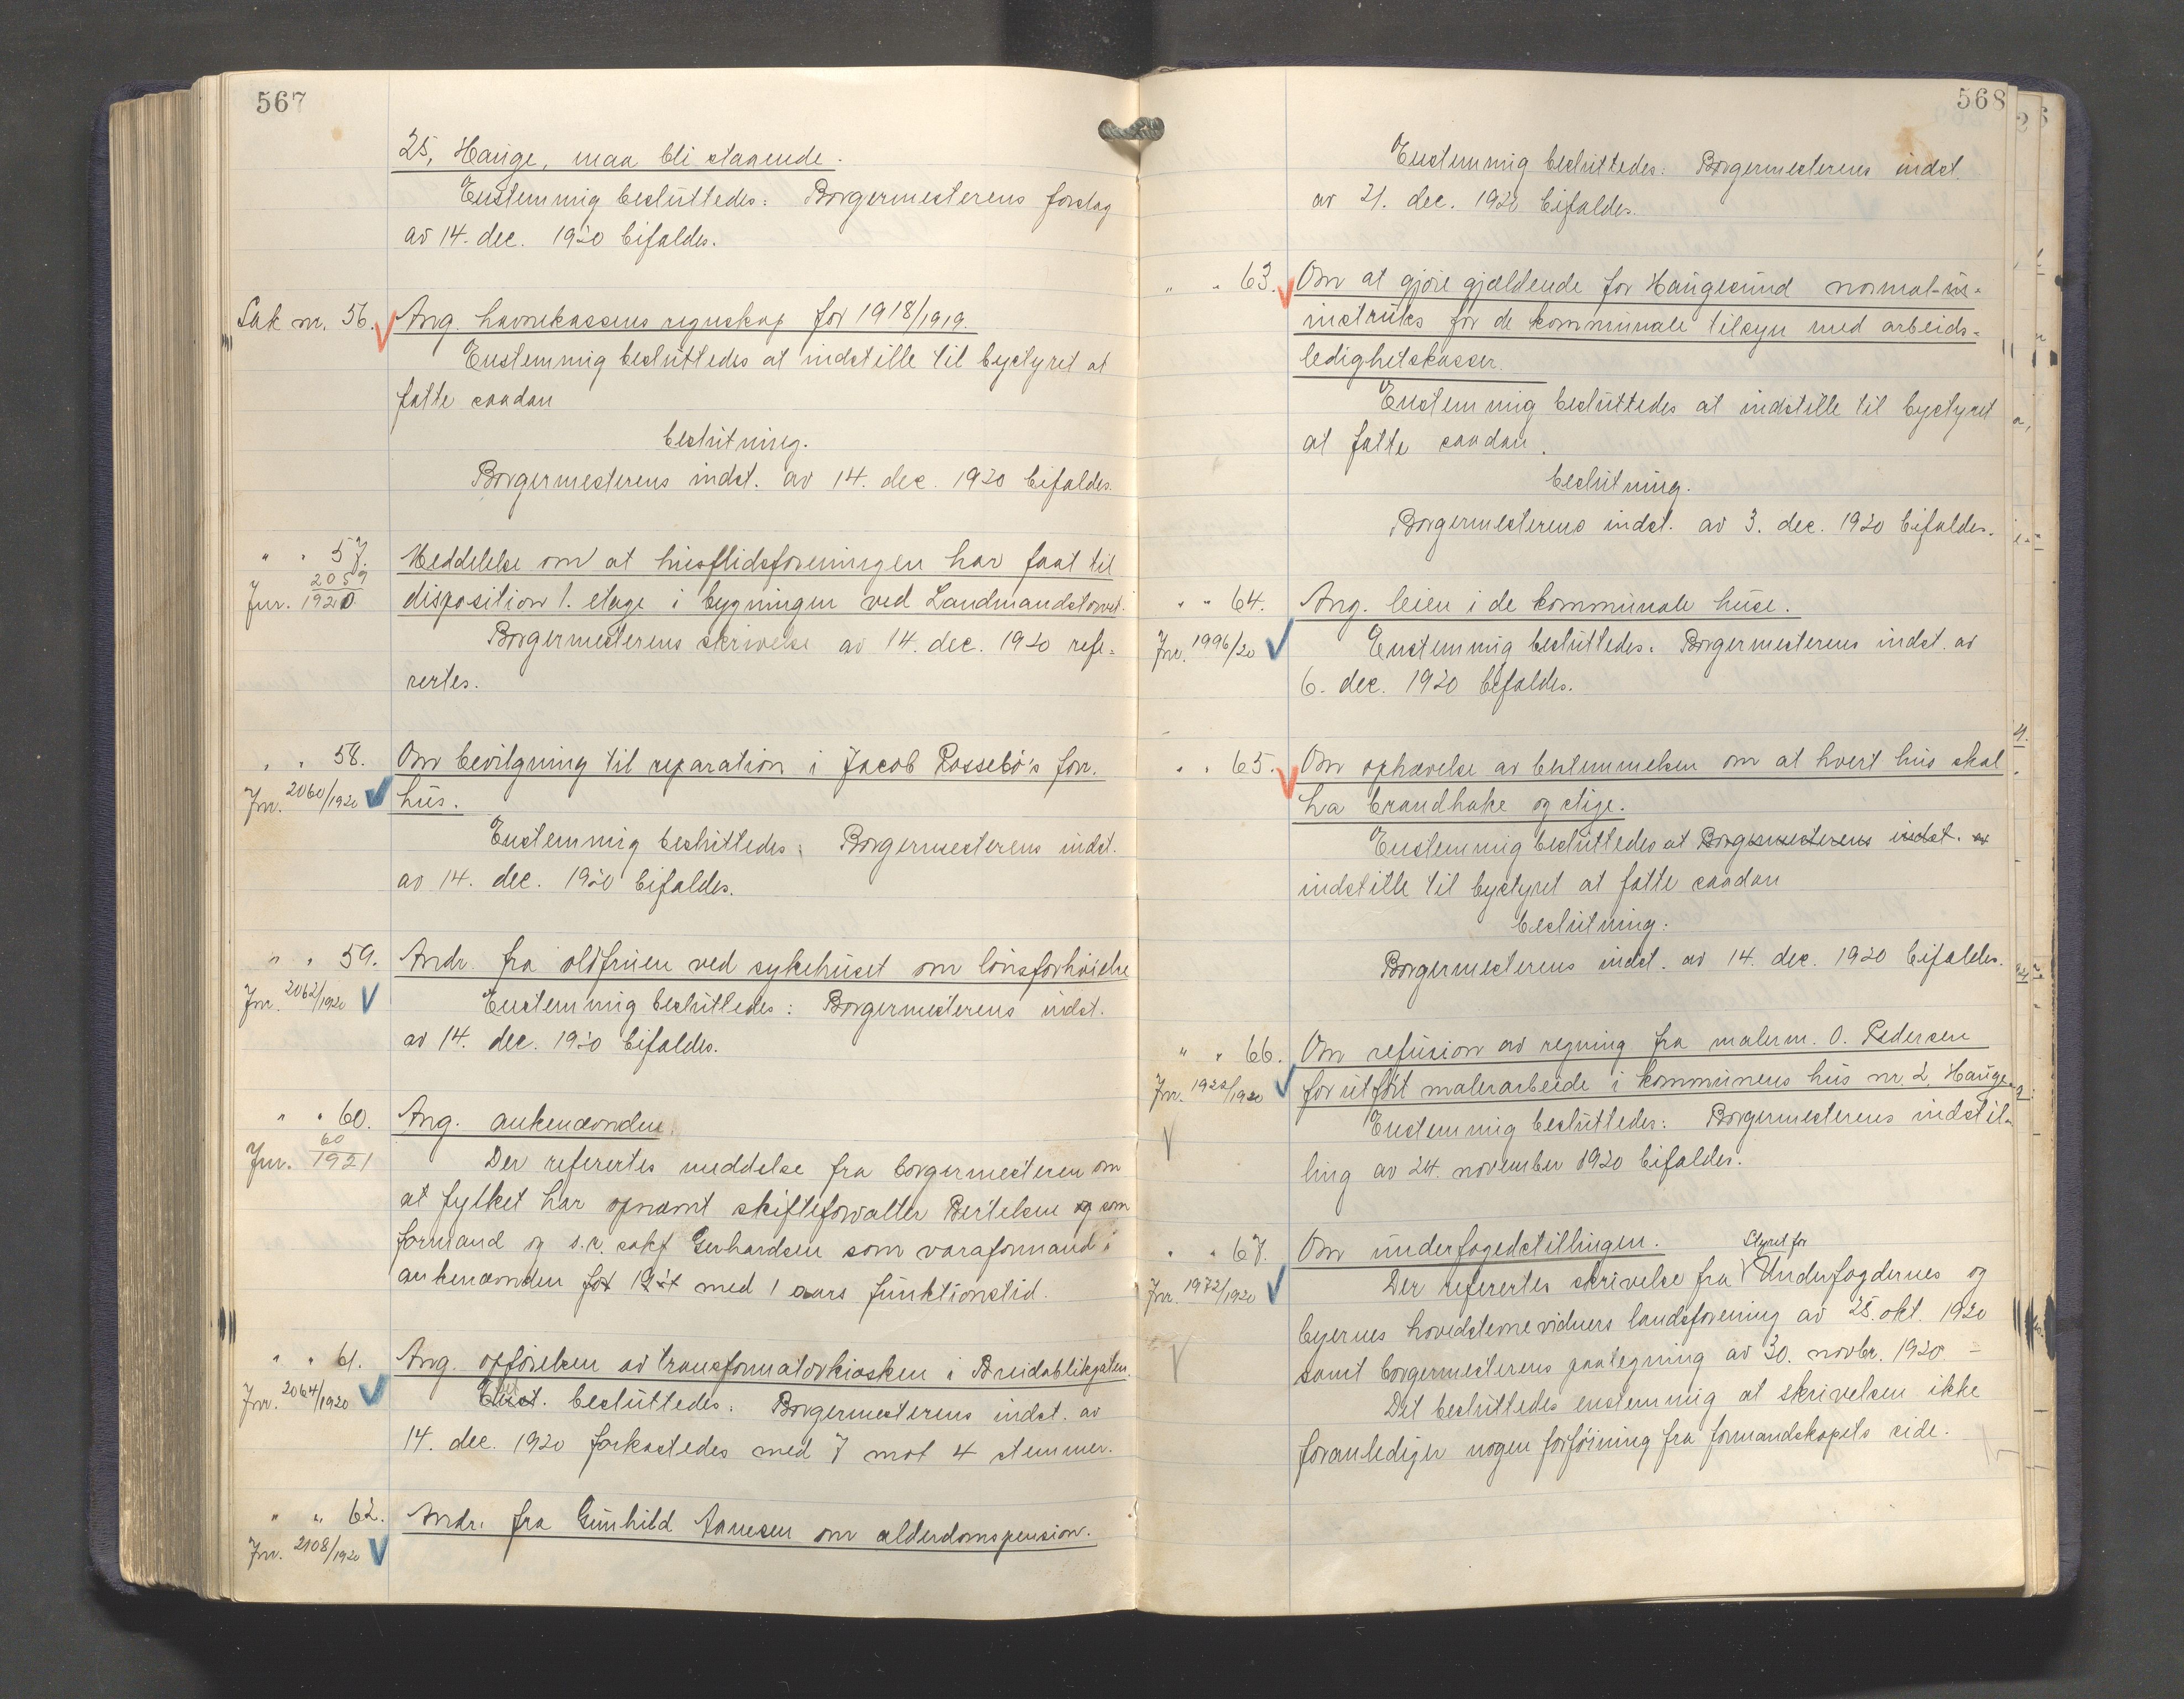 567
25, Hauge, maa bli staaende.
Enstemmig besluttedes: Borgermesterens forslag
av 14. dec. 1920 bifaldes.
Sak nr. 56. Ang. havnekassens regnskap for 1918/1919.
Enstemmig besluttedes at indstille til bystyret at
fatte saadan
beslutning.
Borgermesterens indst. av 14. dec. 1920 bifaldes.
" " 57. Meddelelse om at husflidsforeningen har faat til
Jnr. 2059/1920. disposition 1. etage i bygningen ved Landmandstorvet.
Borgermesterens skrivelse av 14. dec. 1920 refe-
rertes.
" " 58. Om bevilgning til reparation i Jacob Rossebø's forr.
Jnr. 2060/1920 hus.
Enstemmig besluttedes: Borgermesterens indst.
av 14. dec. 1920 bifaldes.
" " 59. Andr. fra oldfruen ved sykehuset om lønsforhøielse
Jnr. 2062/1920 Enstemmig besluttedes: Borgermesterens indst.
av 14. dec. 1920 bifaldes.
" " 60. Ang. ankenævnden
Jnr. 60/1921 Der refertes meddelse fra borgermesteren om
at fylket har opnævnt skifteforvalter Bertelsen og som
formand og o.r. sakf. Gerhardsen som varaformand i
ankenævnden for med 1 aars funktionstid.
" " 61. Ang. opførelsen av transformatorkiosken i Breidablikgaten.
Jnr. 2064/1920 besluttedes: Borgermesterens indst. av
14. dec. 1920 forkastedes med 7 mot 4 stemmer.
" " 62. Andr. fra Gunhild Aanesen om alderdomspension.
Jnr. 2108/1920
568
Enstemmig besluttedes: Borgermesterens indst.
av 21. dec. 1920 bifaldes.
" " 63. Om at gjøre gjældende for Haugesund normal-in-
instruks for de kommunale tilsyn med arbeids-
ledighetskasser.
Enstemmig besluttedes at indstille til bystyret
at fatte saadan
beslutning.
Borgermesterens indst. av 3. dec. 1920 bifaldes.
" " 64. Ang. leien i de kommunale huse.
Jnr. 1996/20 Enstemmig besluttedes: Borgermesterens indst. av
6. dec. 1920 bifaldes.
" " 65. Om ophævelse av bestemmelsen om at hvert hus skal
ha brandhake og stige.
Enstemmig besluttedes at Borgermesterens indst. av
indstille til bystyret at fatte saadan
beslutning:
Borgermesterens indst. av 14. dec. 1920 bifaldes.
" " 66. Om refusion av regning fra malerm. O. Pedersen
Jnr. 1922/1920 for utført malerarbeide i kommunens hus nr. 2, Hauge
Enstemmig besluttedes: Borgermesterens indstil-
ling av 24. november 1920 bifaldes.
" " 67. Om underfogedstillingen.
Styret for
Jnr. 1972/1920 Der refertes skrivelse fra Underfogdernes og
byernes hovedstevnevidners landsforening av 25. okt. 1920
samt borgermesterens paategning av 30. novbr. 1920
Det besluttedes enstemmig at skrivelsen ikke
foranlediger nogen forføining fra formandskapets side.